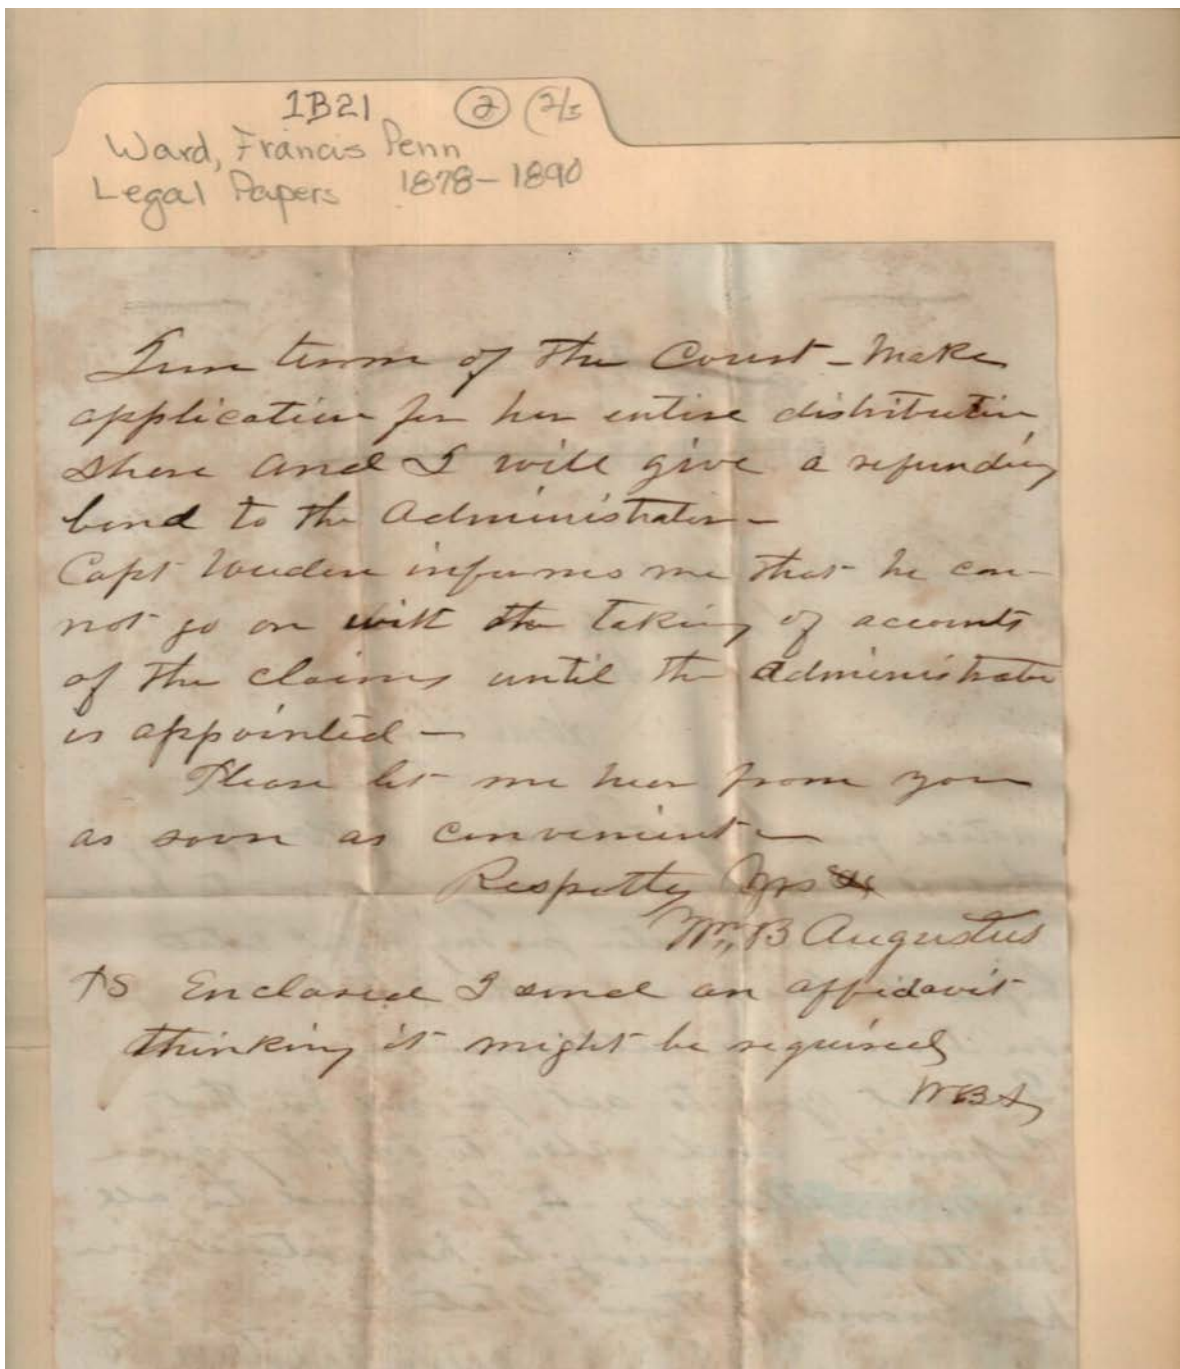 1B21 2 (2/5
Ward, Francis Penn
Legal Papers 1878-1890
June term of the Court - Make
application for her entire distributive
share and I will give a refunding
bond to the Administrator -
Capt informs me that he can-
not go on with the taking of accounts
of the claims until the administrator
is appointed -
Please let me hear from you
as soon as convenient -
Respctly Yrs
Wm. B Augustus
PS Enclosed I send an affidavit
thinking it might be required
WBA